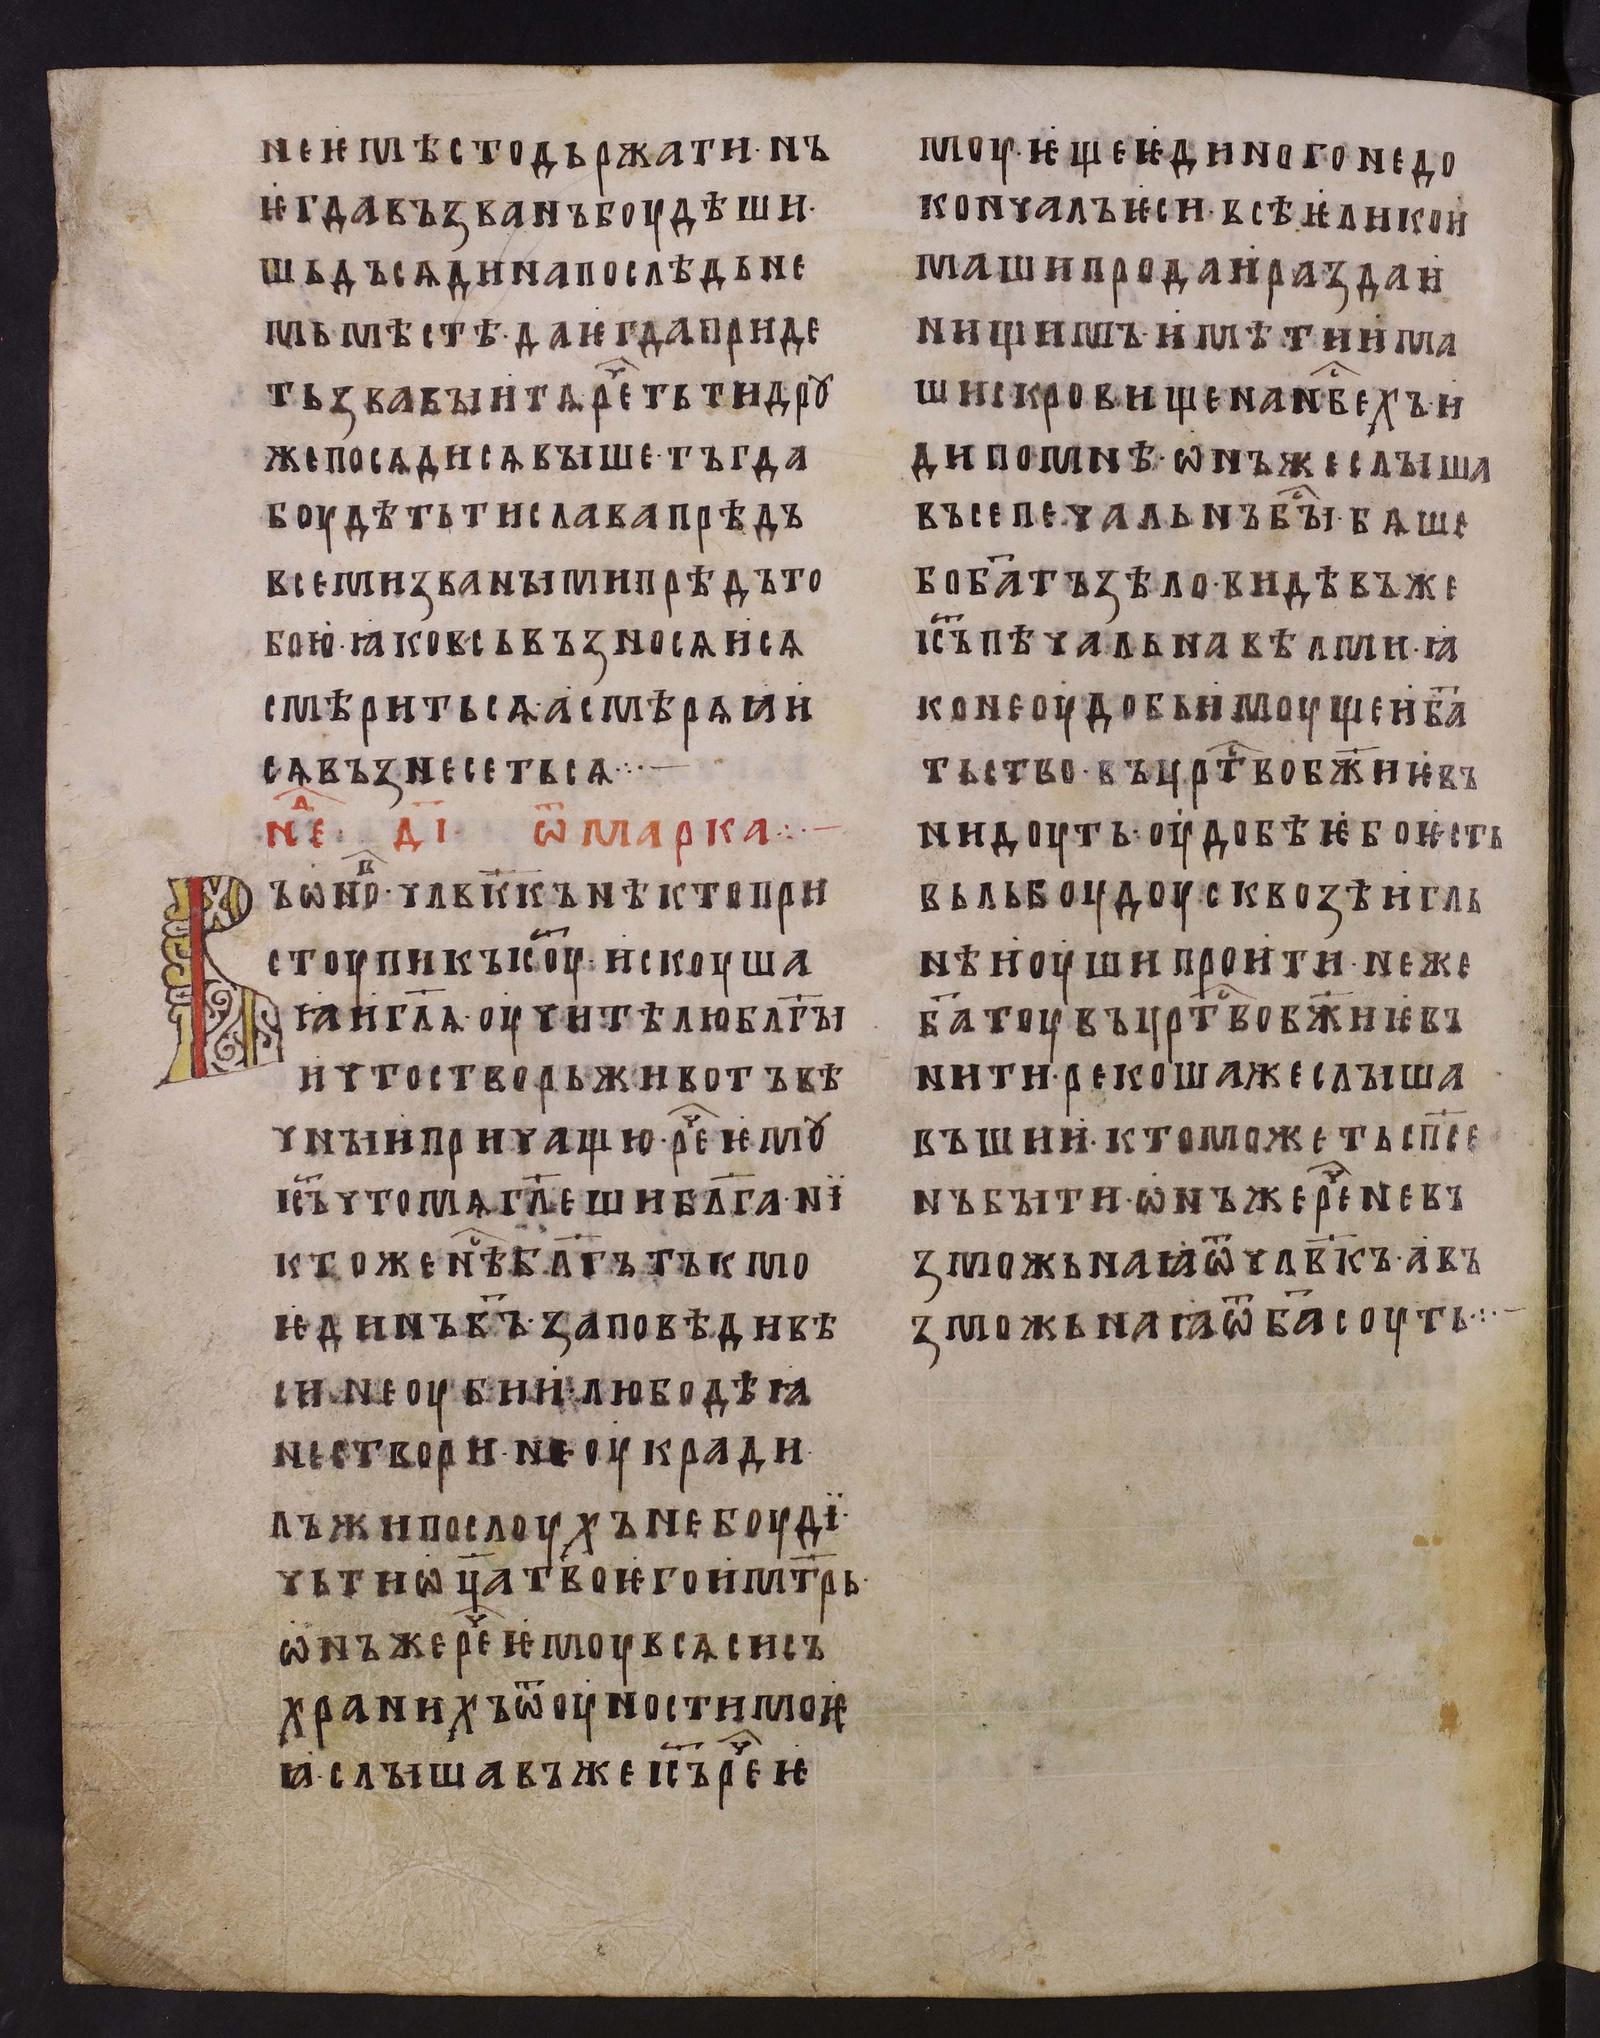 нєѥмѣстодьржати·нъ
ѥгдавъꙁванъбоудѣши·
шьдъсѧдинапослѣдьнє
мьмѣстѣ·даѥгдапридє
тьꙁвавꙑитѧрє҇ⷱтьтидрꙋ
жєпосѧдисѧвꙑшє·тъгда
боудѣтьтиславапрѣдъ
всємиꙁванꙑмипрѣдъто
бою·ꙗковсьвъꙁносѧисѧ
смѣритьсѧ·асмѣрѧꙗи
сѧвъꙁнєсєтьсѧ·:·—
нєⷣ· д҃і· ѿмарка·:·—
Въѡноⷡ·члв҃ккънѣктопри
стоупикъіс҃оу·искоуша
ꙗигл҃ѧ·оучитѣлюблг҃ꙑ
ичтостворьживотъвѣ
чнꙑипричащю·рєⷱѥмꙋ
іс҃ъчтомѧгл҃єшиблг҃а·нї
ктожєнѣⷭблг҃ътъкмо
ѥдинъб҃ъ·ꙁаповѣдивѣ
си·нєоубии·любодѣꙗ
нєствори·нєоукради·
лъжипослоухънєбоудї·
чьтиѡц҃атвоѥгоимт҃рь·
ѡнъжєрєⷱѥмоувсѧсисъ
хранихъѿоуностимоѥ
ꙗ·слꙑшавъжєіс҃ърєⷱѥ
моу·ѥщєѥдиногонєдо
кончалъѥси·всѣѥликои
машипродаираꙁдаи
нищимъ·имѣтиима
шискровищєнан҃бⷭєхъ·и
дипомнѣ·ѡнъжєслꙑша
въсєпєчальнъбꙑⷭ·бѧшє
боб҃атъꙁѣло·видѣвъжє
іс҃ъпѣчальнавѣлми·ꙗ
конєоудобьимоущєиб҃а
тьство·въцрⷭ҇твобж҃иѥвъ
нидоуть·оудобѣѥбоѥсть
вьльбоудоусквоꙁѣигль
нѣиоушипроити·нєжє
б҃атоувъцрⷭ҇твобж҃иѥвъ
нити·рєкошажєслꙑша
въшии·ктоможєтьсп҃сє
нъбꙑти·ѡнъжєрєⷱнєвъ
ꙁможьнаꙗѿчлв҃къ·авъ
ꙁможьнаꙗѿб҃асоуть·:·—